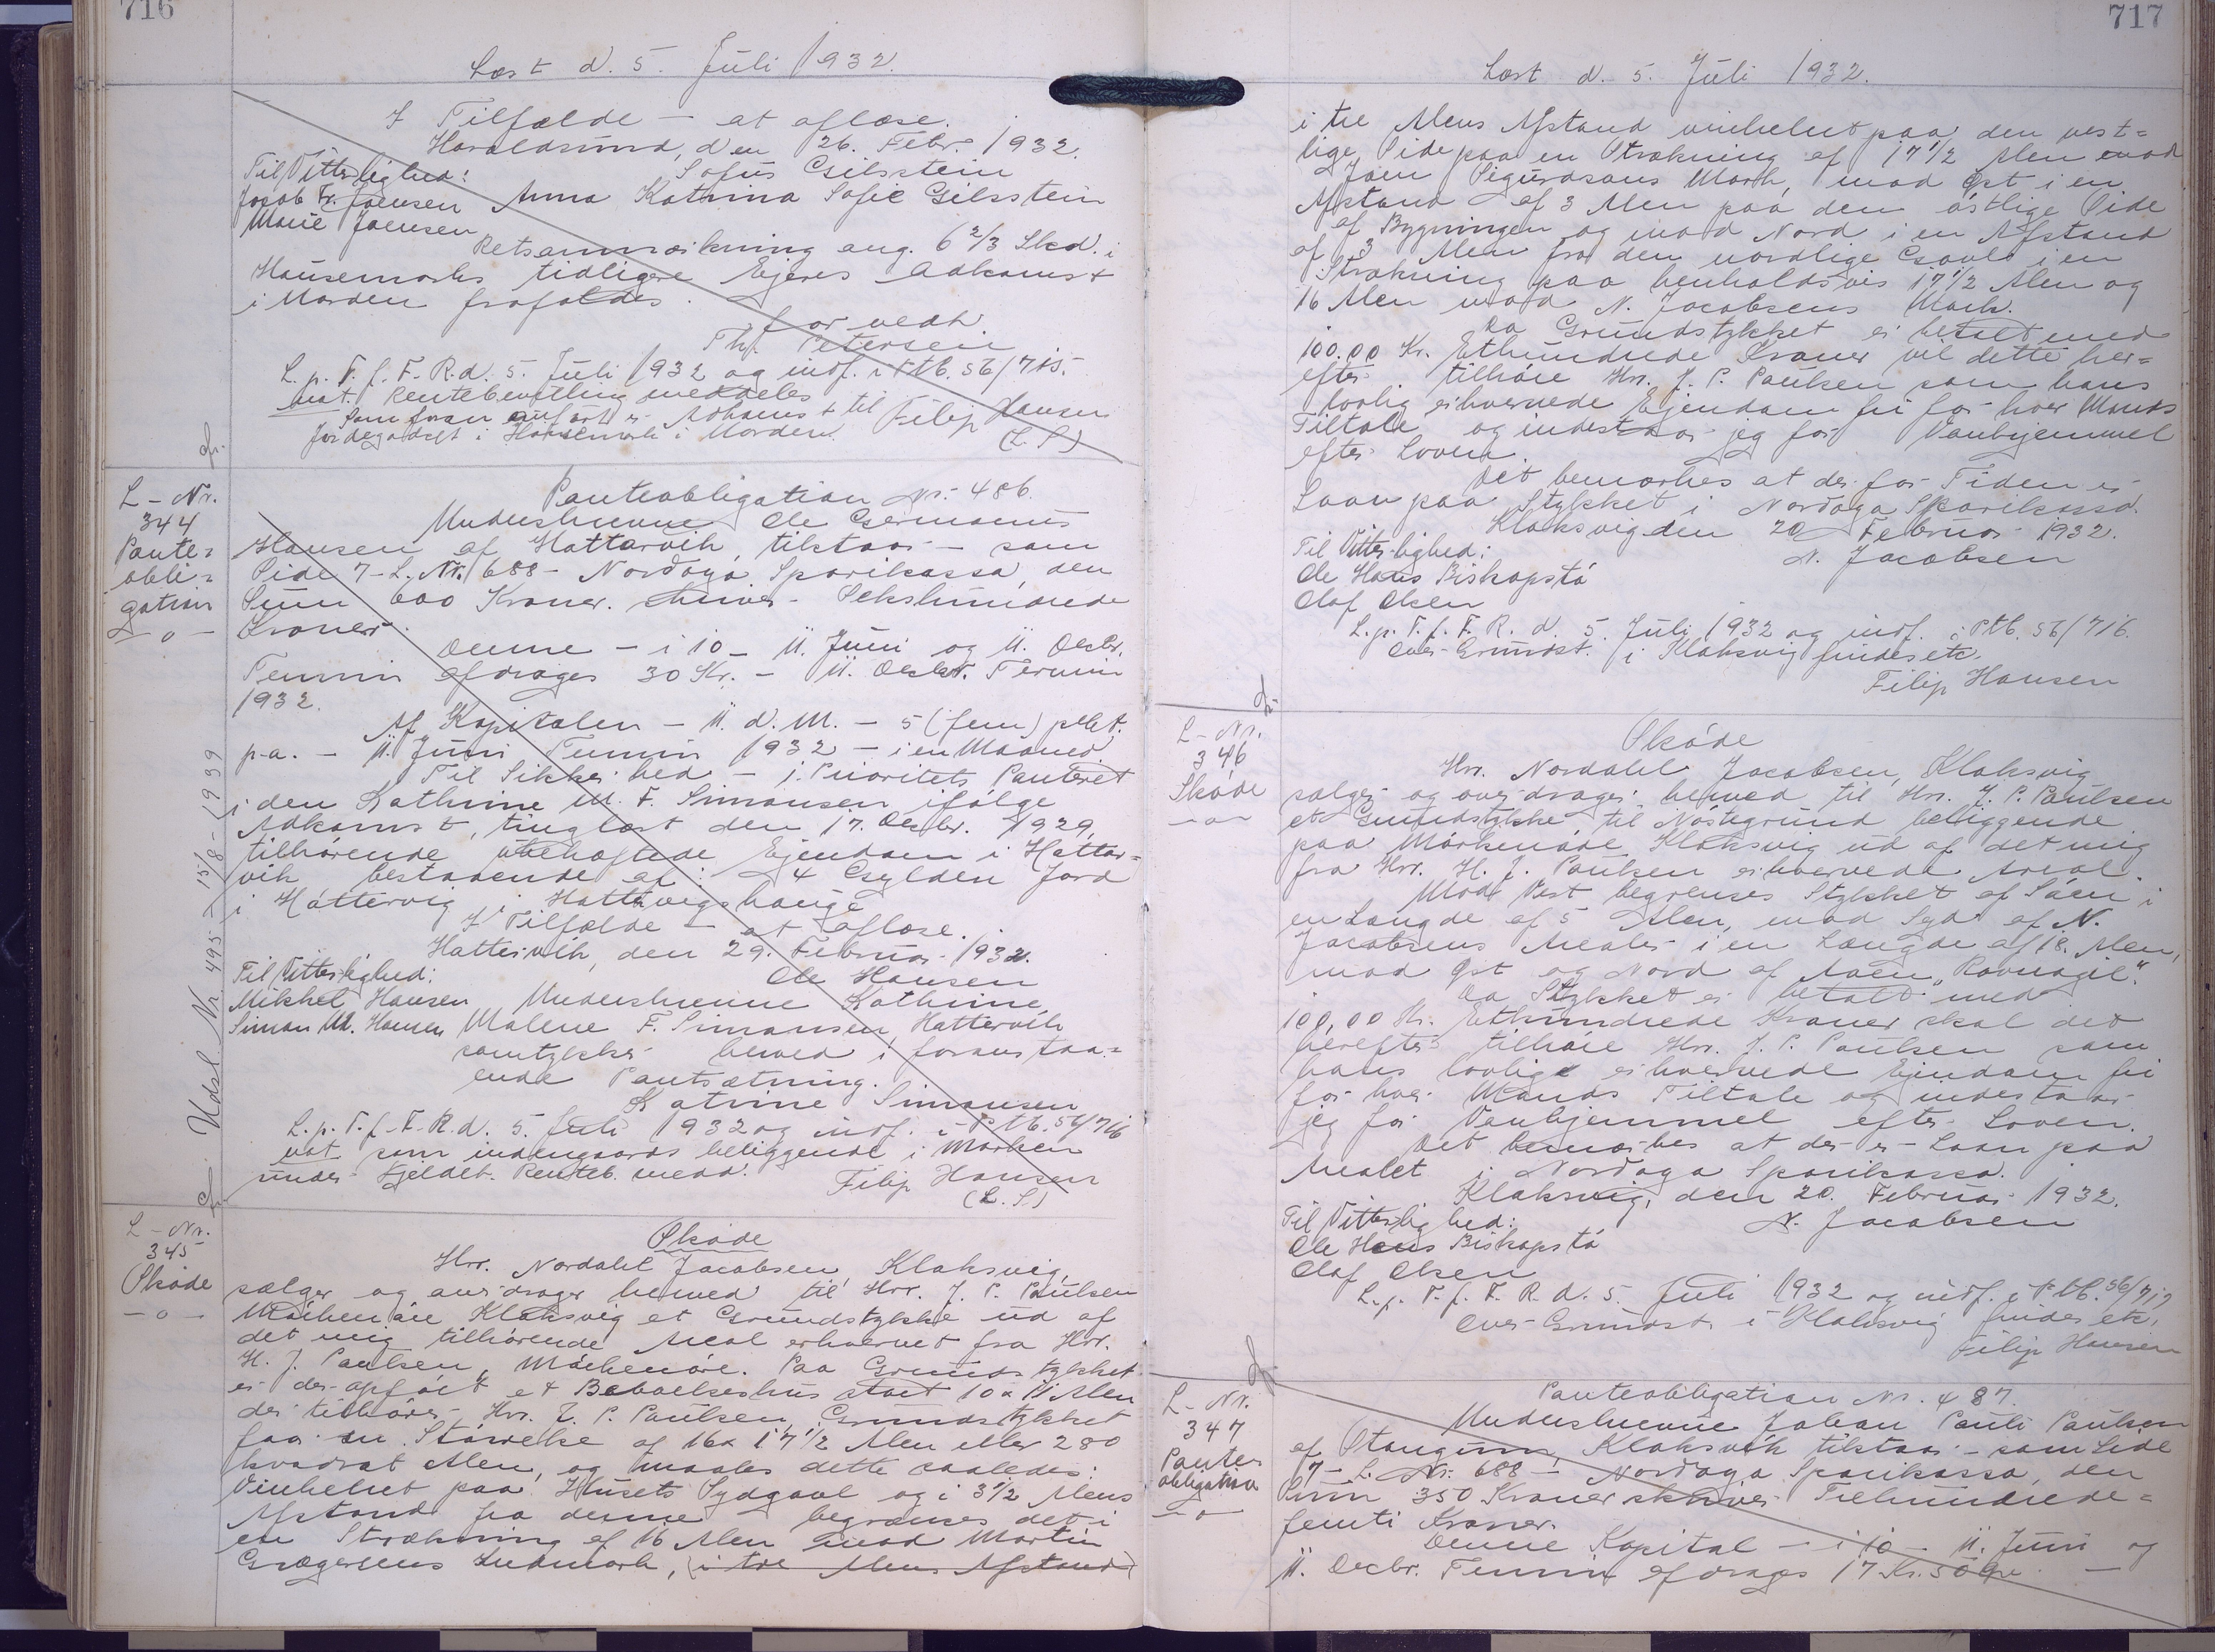 716
Læst d. 5. Juli 1932.
I Tilfælde - at aflæse.
Haraldsund, den 26. Febr. 1932.
Til Vitterlighed: Sofus Gilsstein
Jacob Fr. Joensen Anna Katrina Sofie Gilsstein
Marie Joensen
Retsanmærkning ang. 6 2/3 Skd. i
Husemarks tidligere Ejeres Adkomst
i Marken frafaldes.
for vedk.
Th. Petersen
L. p. T. f. F. R. d. 5. Juli 1932 og indf. i Ptb. 56/715.
not. Rentebevilling meddeles
Som foran anført er Adkomst til Filip Hansen
Jordegodset i Husemark i Marken. (L. S.)
L-Nr.
344
Pante=
obli=
gation
- o -
Udsl. Nr. 495 - 15/8-1939
Panteobligation Nr. 486.
Underskrevne Ole Germanus
Hansen af Hattarvik, tilstaar - som
Side 7-L. Nr. 688 - Nordoya Sparikassa, den
Sum 600 Kroner. skriver - Sekshundrede
Kroner.
Denne - i 10 - 11. Juni og 11. Decbr.
Termin afdrages 30 Kr. - 11. Decbr. Termin
1932.
Af Kapitalen - 11. d. M. - 5 (fem) pCt.
p.a. - 11. Juni Termin 1932 - i en Maaned
Til Sikkerhed - 1. Prioritets Panteret
i den Kathrine M. F. Simonsen ifølge
Adkomst, tinglæst den 17. Decbr. 1929,
tilhørende ubehæftede Ejendom i Hattar=
vik bestaaende af: 4 Gylden Jord
i Hattervig, i Hattervigs hauge
I Tilfælde - at aflæse.
Hattervik, den 29. Februar 1932.
Til Vitterlighed: Ole Hansen
Mikkel Hansen Underskrevne Kathrine
Simon M. Hansen Malene F. Simonsen, Hattervik
samtykker herved i foranstaa=
ende Pantsætning.
Katrine Simonsen
L. p. T. f. F. R. d. 5. Juli 1932 og indf. i Ptb. 56/716
not. som indengaards beliggende i Marken
under Fjeldet. Renteb. medd. Filip Hansen
(L. S.)
L-Nr.
345
Skøde
- o -
Skøde
Hrr. Nordahl Jacobsen, Klaksvig,
sælger og overdrager herved til Hrr. J. P. Paulsen
Mørkenøre Klaksvig et Grundstykke ud af
det mig tilhørende Areal erhvervet fra Hrr.
H. J. Paulsen, Mørkenøre. Paa Grundstykket
er der opført et Beboelseshus stort 10 x 11 Alen
der tilhører Hrr. J. P. Paulsen, Grundstykket
faar en Størrelse af 16 x 17 1/2 Alen eller 280
kvadrat Alen, og maales dette saaledes:
Vinkelret paa Husets Sydgavl og i 3 1/2 Alens
Afstand fra denne begrænses det i
en Strækning af 16 Alen mod Martin
Grægersens Indmark, (i tre Alens Afstand)
717
Læst d. 5. Juli 1932.
i tre Alens Afstand vinkelret paa den vest=
lige Side paa en Strækning af 17 1/2 Alen mod
Joen Sigurdsons Mark, mod Øst i en
Afstand af 3 Alen paa den østlige Side
af Bygningen og mod Nord i en Afstand
af 3 Alen fra den nordlige Gavl i en
Strækning paa henholdsvis 17 1/2 Alen og
16 Alen mod N. Jacobsens Mark.
Da Grundstykket er betalt med
100.00 Kr. Ethundrede Kroner vil dette her=
efter tilhøre Hrr. J. P. Paulsen som hans
lovlig erhvervede Ejendom fri for hver Mands
Tiltale og indestaar jeg for Vanhjemmel
efter Loven.
Det bemærkes at der for Tiden er
Laan paa Stykket i Nordoya Sparikassa.
Klaksvig den 20 Februar 1932.
Til Vitterlighed: N. Jacobsen
Ole Hans Biskopstø
Olaf Olsen
L. p. T. f. F. R. d. 5. Juli 1932 og indf. i Ptb. 56/716.
Over Grundst. i Klaksvig findes etc.
Filip Hansen
L-Nr.
346
Skøde
- o -
Skøde
Hrr. Nordahl Jacobsen, Klaksvig
sælger og overdrager herved til Hrr. J. P. Paulsen
et Grundstykke til Nøstegrund beliggende
paa Mørkenøre Klaksvig ud af det mig
fra Hrr. H. J. Paulsen erhvervede Areal.
Mod Vest begrænses Stykket af Søen i
en Længde af 5 Alen, mod Syd af N.
Jacobsens Areal i en Længde af 18. Alen,
mod Øst og Nord af Aaen "Ravnagil".
Da Stykket er betalt med
100,00 Kr. Ethundrede Kroner skal det
herefter tilhøre Hrr. J. P. Paulsen som
hans lovlige erhvervede Ejendom fri
for hver Mands Tiltale og indestaar
jeg for Vanhjemmel efter Loven.
Det bemærkes at der er Laan paa
Arealet i Nordoya Sparikassa.
Klaksvig, den 20. Februar 1932.
Til Vitterlighed: N. Jacobsen
Ole Hans Biskopstø
Olaf Olsen
L. p. T. f. F. R. d. 5. Juli 1932 og indf. i Ptb. 56/717
Over Grundst. i Klaksvig findes etc.
Filip Hansen
L-Nr.
347
Pante=
obligation
- o -
Panteobligation Nr. 487.
Underskrevne Joban Pauli Paulsen
af Stangum, Klaksvik tilstaar - som Side
7-L. Nr. 688 - Nordoya Sparikassa, den
Sum 350 Kroner skriver Trehundrede=
femti Kroner.
Denne Kapital - i 10 - 11. Juni og
11. Decbr. Termin afdrages 17 Kr. 50 Øre -